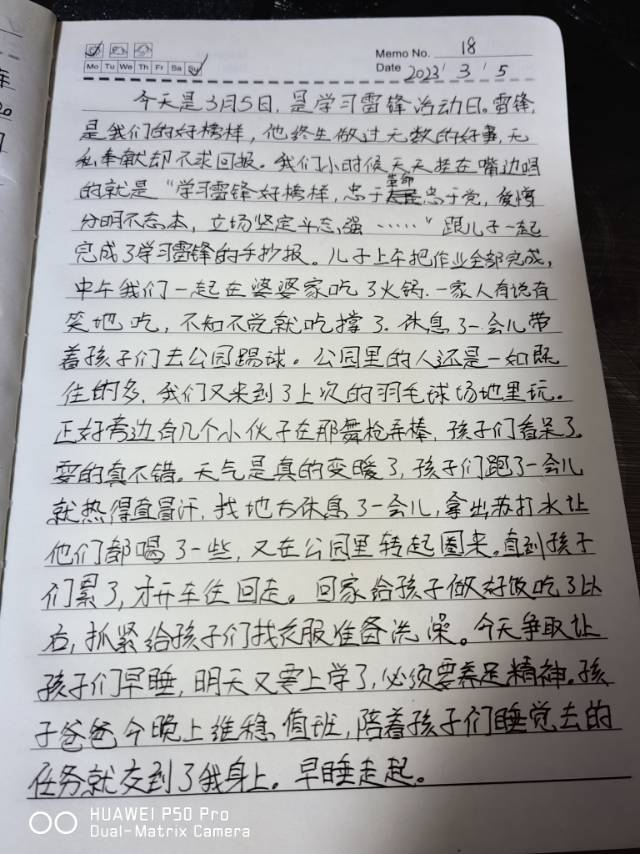 Memo No. 18
Mo Tu We Th Fr Sa Su
Date 2023 / 3 / 5
今天是3月5日，是学习雷锋活动日。雷锋，
是我们的好榜样，他终生做过无数的好事，无
私奉献却不求回报。我们小时候天天挂在嘴边唱
的就是“学习雷锋好榜样，忠于革命忠于党，爱憎
分明不忘本，立场坚定斗志强……”跟儿子一起
完成了学习雷锋的手抄报。儿子上午把作业全部完成，
中午我们一起在婆婆家吃了火锅.一家人有说有
笑地吃，不知不觉就吃撑了.休息了一会儿带
着孩子们去公园踢球。公园里的人还是一如既
往的多.我们又来到了上次的羽毛球场地里玩。
正好旁边有几个小伙子在那舞枪弄棒，孩子们看呆了。
耍的真不错。天气是真的变暖了，孩子们跑了一会儿
就热得直冒汗.找地方休息了一会儿，拿出苏打水让
他们都喝了一些，又在公园里转起圈来。直到孩子
们累了，才开车往回走。回家给孩子做好饭吃了以
后，抓紧给孩子们找衣服准备洗澡。今天争取让
孩子们早睡，明天又要上学了，必须要养足精神。孩
子爸爸今晚上维稳值班，陪着孩子们睡觉去的
任务就交到了我身上。早睡走起。
20
HUAWEI P50 Pro
Dual-Matrix Camera